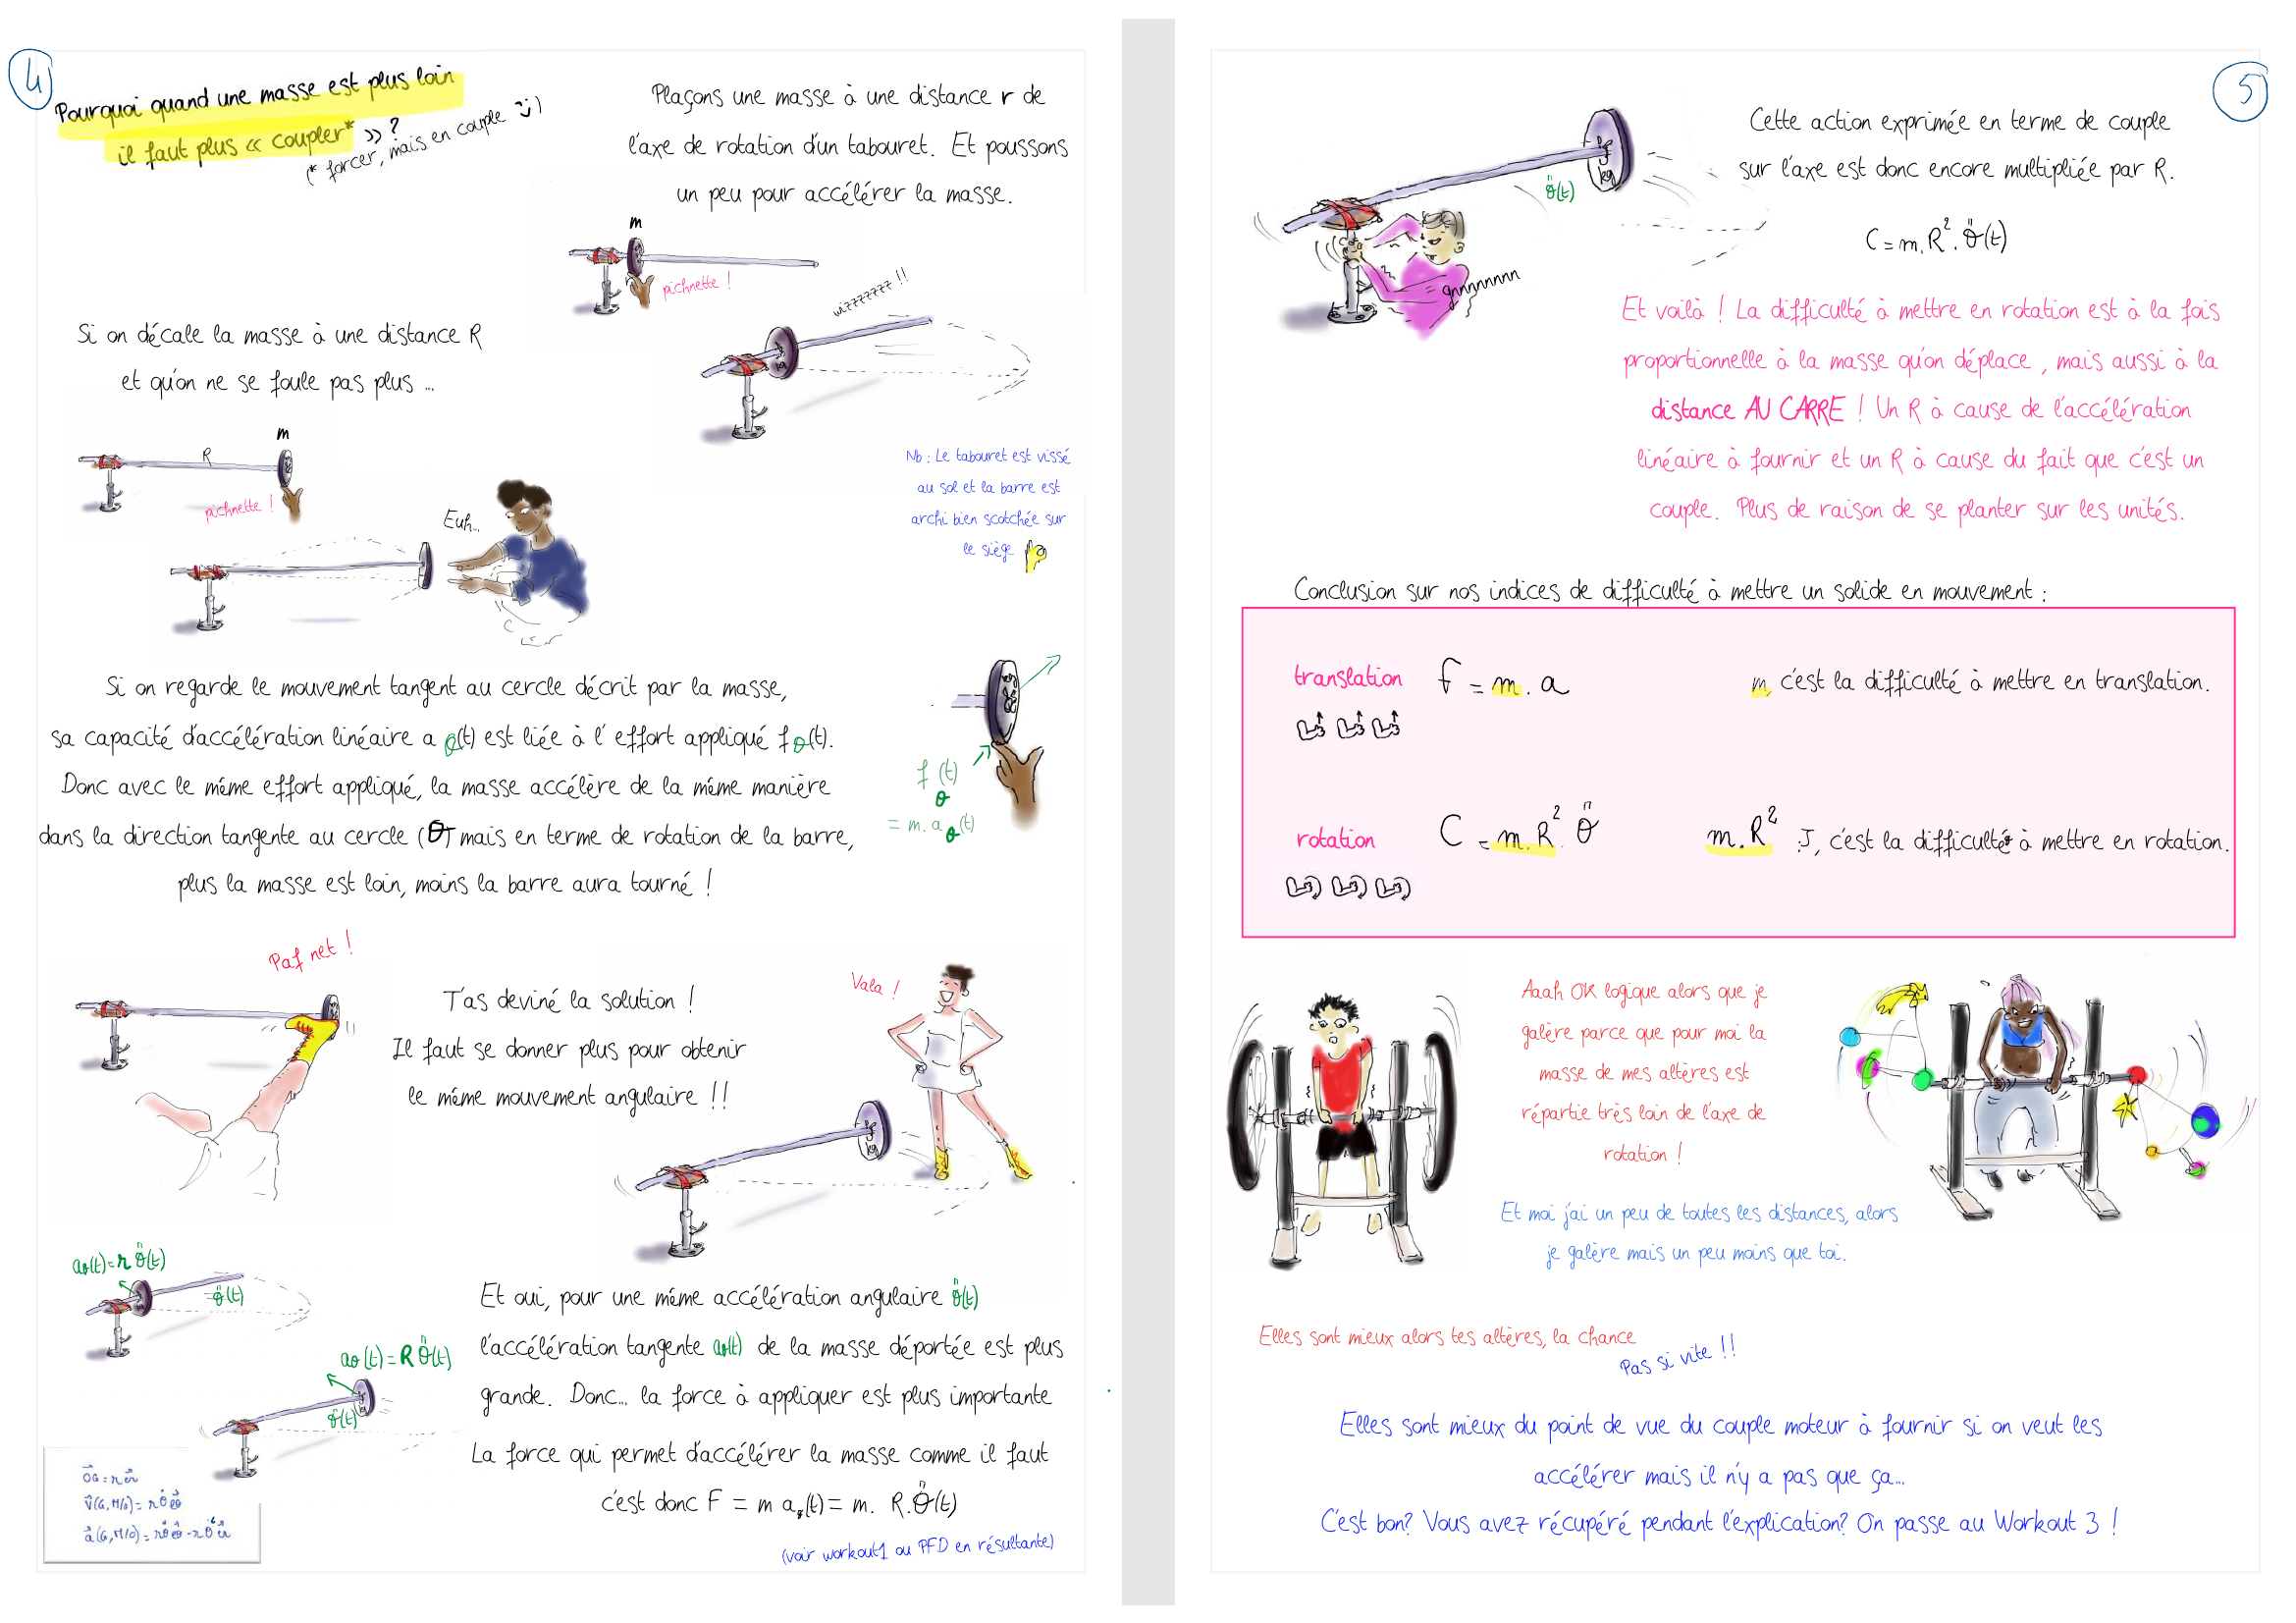 4
Pourquoi quand une masse est plus loin
il faut plus « coupler* » ?
(* forcer, mais en couple :))
Plaçons une masse à une distance r de
l'axe de rotation d'un tabouret. Et poussons
un peu pour accélérer la masse.
m
pichnette !
wizzzzzzz !!
Si on décale la masse à une distance R
et qu'on ne se foule pas plus ...
m
R
pichnette !
Euh...
Nb : Le tabouret est vissé
au sol et la barre est
archi bien scotchée sur
le siège
Si on regarde le mouvement tangent au cercle décrit par la masse,
sa capacité d'accélération linéaire a θ(t) est liée à l'effort appliqué f θ(t).
Donc avec le même effort appliqué, la masse accélère de la même manière
dans la direction tangente au cercle (θ) mais en terme de rotation de la barre,
plus la masse est loin, moins la barre aura tourné !
f θ (t)
= m. a θ (t)
Paf net !
T'as deviné la solution !
Il faut se donner plus pour obtenir
le même mouvement angulaire !!
Vala !
kg
aθ(t) = r θ̈(t)
θ̈(t)
aθ(t) = R θ̈(t)
θ̈(t)
Et oui, pour une même accélération angulaire θ̈(t)
l'accélération tangente aθ(t) de la masse déportée est plus
grande. Donc... la force à appliquer est plus importante
La force qui permet d'accélérer la masse comme il faut
c'est donc F = m aθ(t) = m. R. θ̈(t)
(voir workout1 ou PFD en résultante)
OG = r er
V(G, M/0) = r θ̇ eθ
a(G, M/0) = r θ̈ eθ - r θ̇² er
5
kg
θ̈(t)
gnnnnnnn
Cette action exprimée en terme de couple
sur l'axe est donc encore multipliée par R.
C = m. R². θ̈(t)
Et voilà ! La difficulté à mettre en rotation est à la fois
proportionnelle à la masse qu'on déplace , mais aussi à la
distance AU CARRE ! Un R à cause de l'accélération
linéaire à fournir et un R à cause du fait que c'est un
couple. Plus de raison de se planter sur les unités.
Conclusion sur nos indices de difficulté à mettre un solide en mouvement :
translation
f = m . a
m, c'est la difficulté à mettre en translation.
rotation
C = m. R². θ̈
m. R² : J, c'est la difficulté à mettre en rotation.
Aaah OK logique alors que je
galère parce que pour moi la
masse de mes altères est
répartie très loin de l'axe de
rotation !
Et moi j'ai un peu de toutes les distances, alors
je galère mais un peu moins que toi.
Elles sont mieux alors tes altères, la chance
Pas si vite !!
Elles sont mieux du point de vue du couple moteur à fournir si on veut les
accélérer mais il n'y a pas que ça...
C'est bon? Vous avez récupéré pendant l'explication? On passe au Workout 3 !